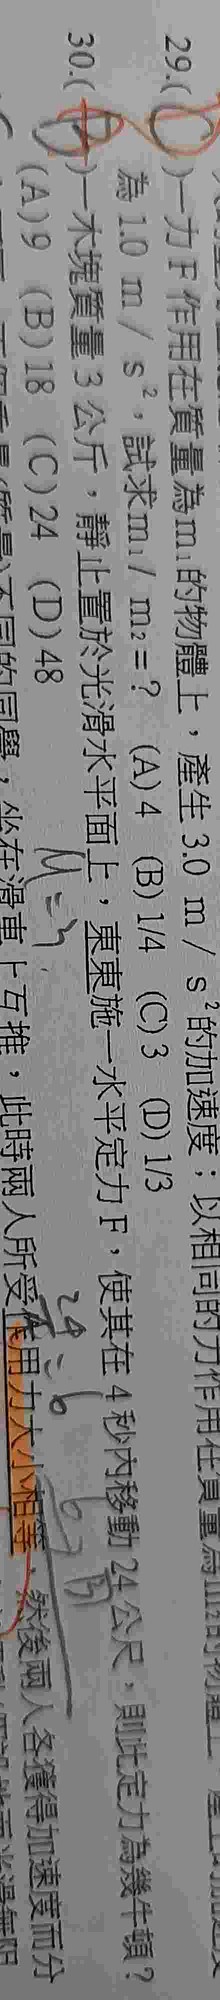 29.( )一力F作用在質量為m₁的物體上，產生3.0 m / s²的加速度；以相同的力作用在質量為m₂的物體上，產生的加速度
為1.0 m / s²，試求m₁/ m₂=？ (A)4 (B)1/4 (C)3 (D)1/3
30.( )一木塊質量3公斤，靜止置於光滑水平面上，東東施一水平定力F，使其在4秒內移動24公尺，則此定力為幾牛頓？
(A)9 (B)18 (C)24 (D)48
M=3
24
6
不同的同學，坐在滑車上互推，此時兩人所受作用力大小相等，然後兩人各獲得加速度而分